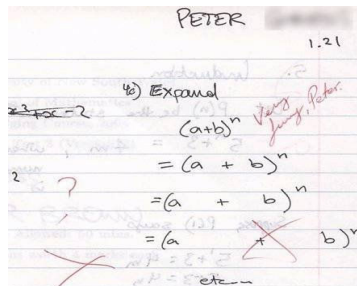 PETER
1.21
4c) Expand
(a+b)ⁿ
Very funny, Peter.
= (a + b)ⁿ
?
= (a + b)ⁿ
= (a + b)ⁿ
etc...